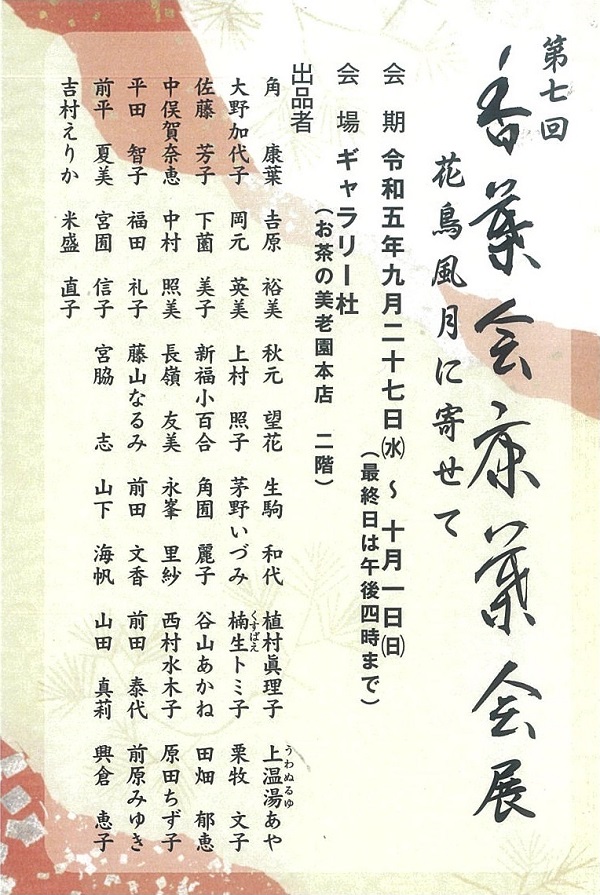 第七回
香葉会康葉会展
花鳥風月に寄せて
会期 令和五年九月二十七日㈬ ~ 十月一日㈰
(最終日は午後四時まで)
会場 ギャラリー杜
(お茶の美老園本店 二階)
出品者
角 康葉 𠮷原 裕美 秋元 望花 生駒 和代 植村眞理子 上温湯あや
うわぬるゆ
大野加代子 岡元 英美 上村 照子 茅野いづみ 楠生トミ子 栗牧 文子
くすばえ
佐藤 芳子 下薗 美子 新福小百合 角囿 麗子 谷山あかね 田畑 郁恵
中俣賀奈恵 中村 照美 長嶺 友美 永峯 里紗 西村水木子 原田ちず子
平田 智子 福田 礼子 藤山なるみ 前田 文香 前田 泰代 前原みゆき
前平 夏美 宮囿 信子 宮脇 志 山下 海帆 山田 真莉 興倉 恵子
吉村えりか 米盛 直子